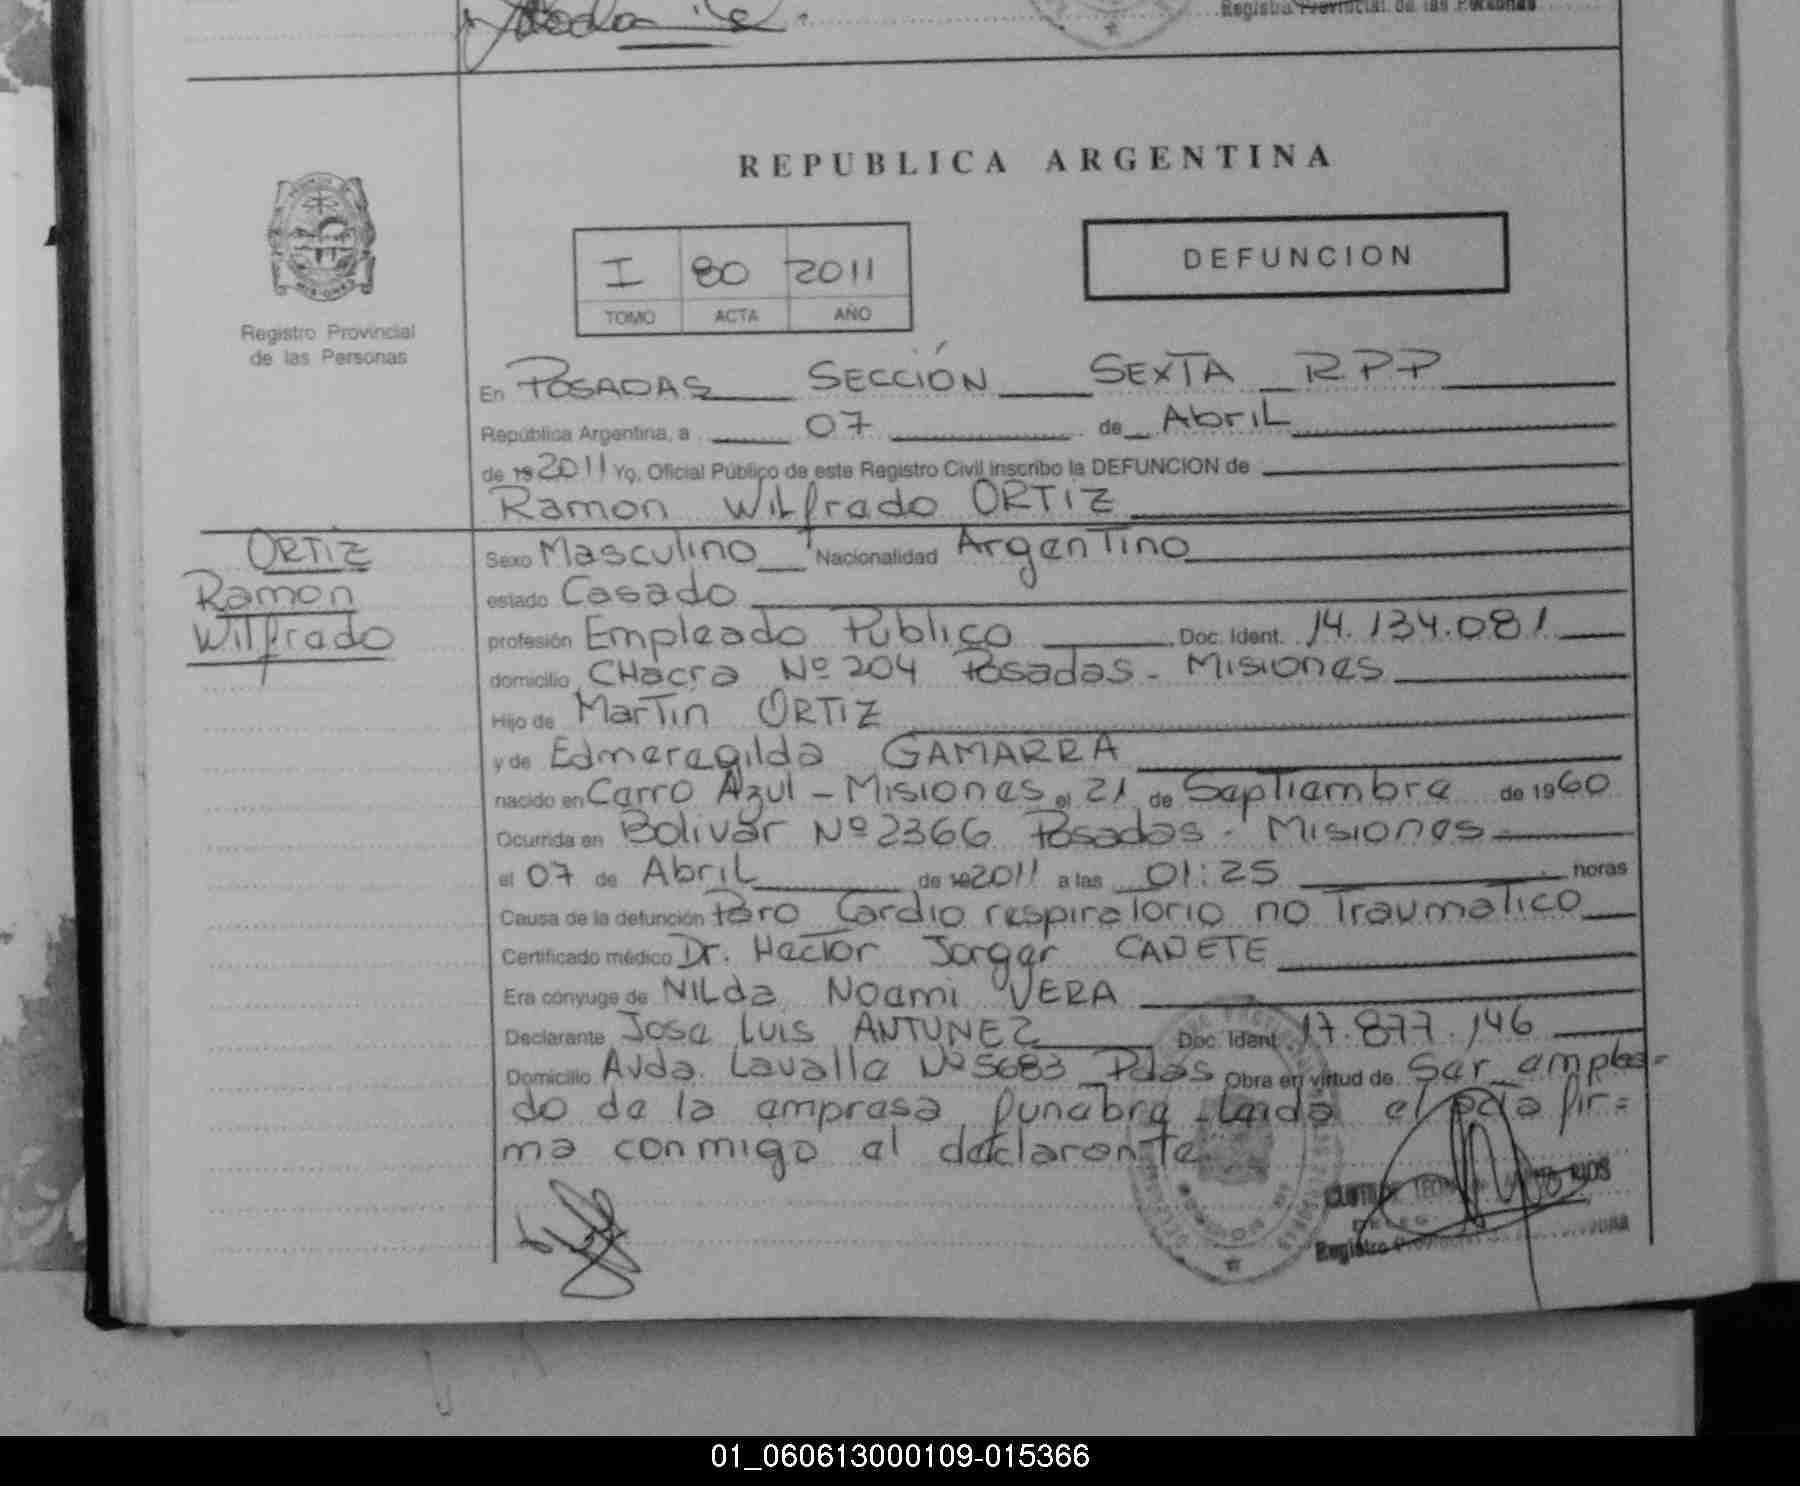 Registro Provincial de las Personas
REPUBLICA ARGENTINA
I 80 2011
TOMO ACTA AÑO
DEFUNCION
Registro Provincial
de las Personas
En POSADAS SECCIÓN SEXTA R.P.P
República Argentina, a 07 de Abril
de 19 2011 Yo, Oficial Público de este Registro Civil inscribo la DEFUNCION de
Ramon Wilfrado ORTIZ
ORTIZ
Ramon
Wilfrado
Sexo Masculino Nacionalidad Argentino
estado Casado
profesión Empleado Publico Doc. Ident. 14.134.081
domicilio CHacra Nº 204 Posadas - Misiones
Hijo de Martin ORTIZ
y de Edmeregilda GAMARRA
nacido en Cerro Azul - Misiones el 21 de Septiembre de 1960
Ocurrida en Bolivar Nº 2366 Posadas - Misiones
el 07 de Abril de 19 2011 a las 01:25 horas
Causa de la defunción Paro Cardio respiratorio no Traumatico
Certificado médico Dr. Hector Jorger CAÑETE
Era cónyuge de Nilda Noemi VERA
Declarante Jose Luis ANTUNEZ Doc. Ident. 17.877.146
Domicilio Avda. Lavalle Nº 5683 Pdas Obra en virtud de Ser emplea-
do de la empresa funebre Leida el acta fir=
ma conmigo el declarante
Registro
01_060613000109-015366